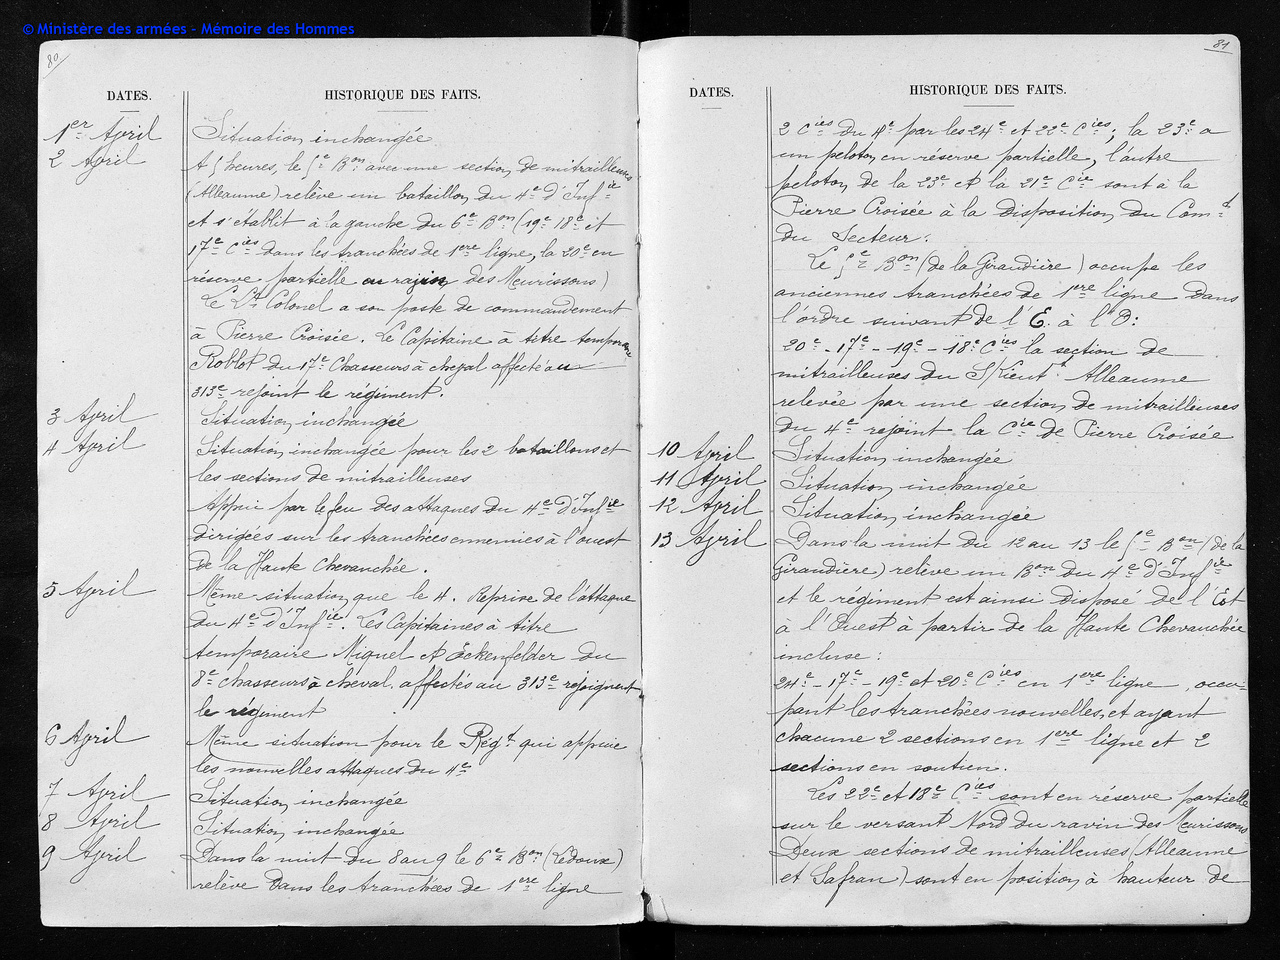 © Ministère des armées - Mémoire des Hommes
80
DATES.
HISTORIQUE DES FAITS.
1er April
Situation inchangée
2 April
A 5 heures, le 5e Bon avec une section de mitrailleuses
(Alleaume) relève un bataillon du 4e d'Infie
et s'établit à la gauche du 6e Bon (19e 18e et
17e Cies dans les tranchées de 1ere ligne, la 20e en
réserve partielle au ravin des Meurissons)
Le Lt Colonel a son poste de commandement
à Pierre Croisée. Le Capitaine à titre temporaire
Roblot du 17e Chasseurs à cheval affecté au
313e rejoint le régiment.
3 April
Situation inchangée
4 April
Situation inchangée pour les 2 bataillons et
les sections de mitrailleuses
Appui par le feu des attaques du 4e d'Infie
dirigées sur les tranchées ennemies à l'ouest
de la Haute Chevauchée.
5 April
Même situation que le 4. Reprise de l'attaque
du 4e d'Infie. Les Capitaines à titre
temporaire Miquel et Ockenfelder du
8e chasseurs à cheval, affectés au 313e rejoignent
le régiment
6 April
Même situation pour le Régt qui appuie
les nouvelles attaques du 4e
7 April
Situation inchangée
8 April
Situation inchangée
9 April
Dans la nuit du 8 au 9 le 6e Bon (Ledoux)
relève dans les tranchées de 1ere ligne
81
DATES.
HISTORIQUE DES FAITS.
2 Cies du 4e par les 24e et 22e Cies; la 23e a
un peloton en réserve partielle, l'autre
peloton de la 23e et la 21e Cie sont à la
Pierre Croisée à la disposition du Comdt
du Secteur.
Le 5e Bon (de la Giraudière) occupe les
anciennes tranchées de 1ere ligne dans
l'ordre suivant de l'E. à l'O:
20e - 17e - 19e - 18e Cies la section de
mitrailleuses du Alleaume
relevée par une section de mitrailleuses
du 4e rejoint la Cie de Pierre Croisée
10 April
Situation inchangée
11 April
Situation inchangée
12 April
Situation inchangée
13 April
Dans la nuit du 12 au 13 le 5e Bon (de la
Giraudière) relève un Bon du 4e d'Infie
et le régiment est ainsi disposé de l'Est
à l'Ouest à partir de la Haute Chevauchée
incluse:
24e - 17e - 19e et 20e Cies en 1ere ligne, occu-
pant les tranchées nouvelles, et ayant
chacune 2 sections en 1ere ligne et 2
sections en soutien.
Les 22e et 18e Cies sont en réserve partielle
sur le versant Nord du ravin des Meurissons
Deux sections de mitrailleuses (Alleaume
et Safran) sont en position à hauteur de